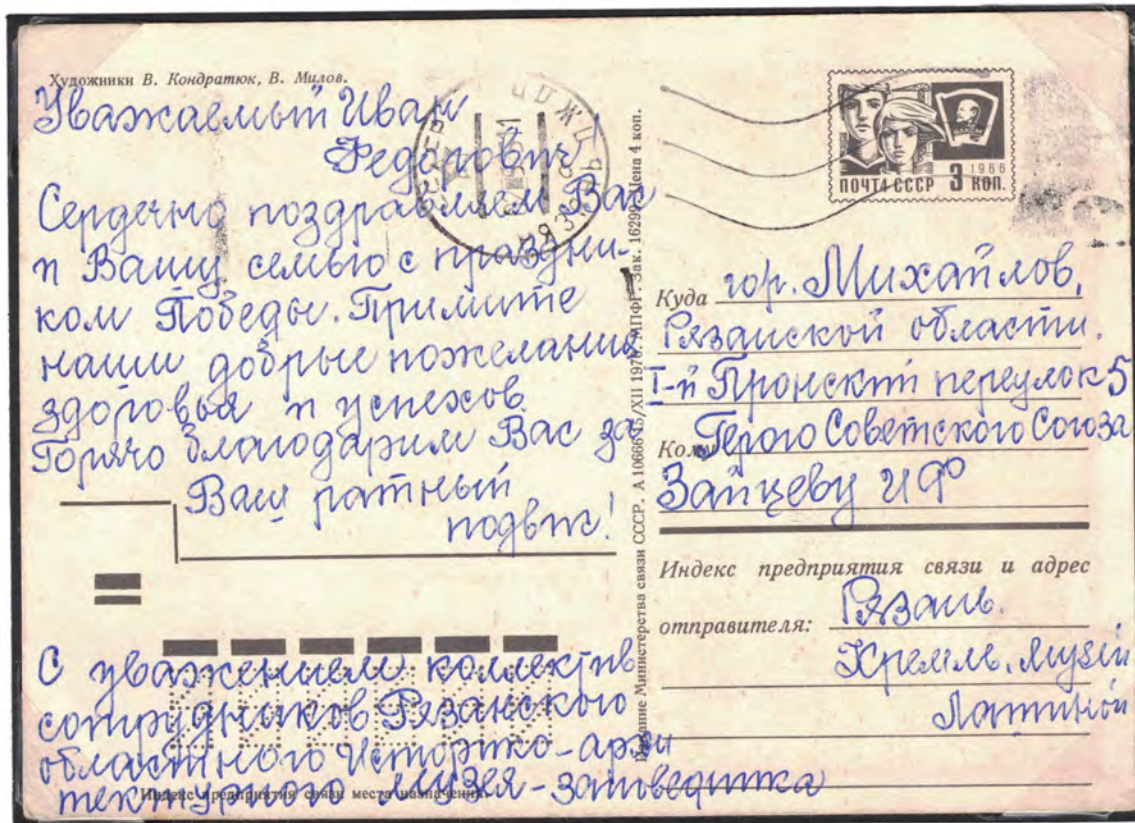 Художники В. Кондратюк, В. Милов.
Уважаемый Иван
Федорович!
Сердечно поздравляем Вас
и Вашу семью с праздни-
ком Победы. Примите
наши добрые пожелания
здоровья и успехов
Горячо благодарим Вас за
Ваш ратный
подвиг!
С уважением коллектив
сотрудников Рязанского
областного Историко-архи
тектурного Музея-заповедника
Индекс предприятия связи места назначения
Издание Министерства связи СССР. А 10666 15/XII 1970. МПФГ. Зак. 16299. Цена 4 коп.
ВЛКСМ
1966
ПОЧТА СССР 3 КОП.
Куда гор. Михайлов,
Рязанской области.
I-й Пронский переулок 5
Кому Герою Советского Союза
Зайцеву И Ф
Индекс предприятия связи и адрес
отправителя: Рязань.
Кремль. Музей
Латиной